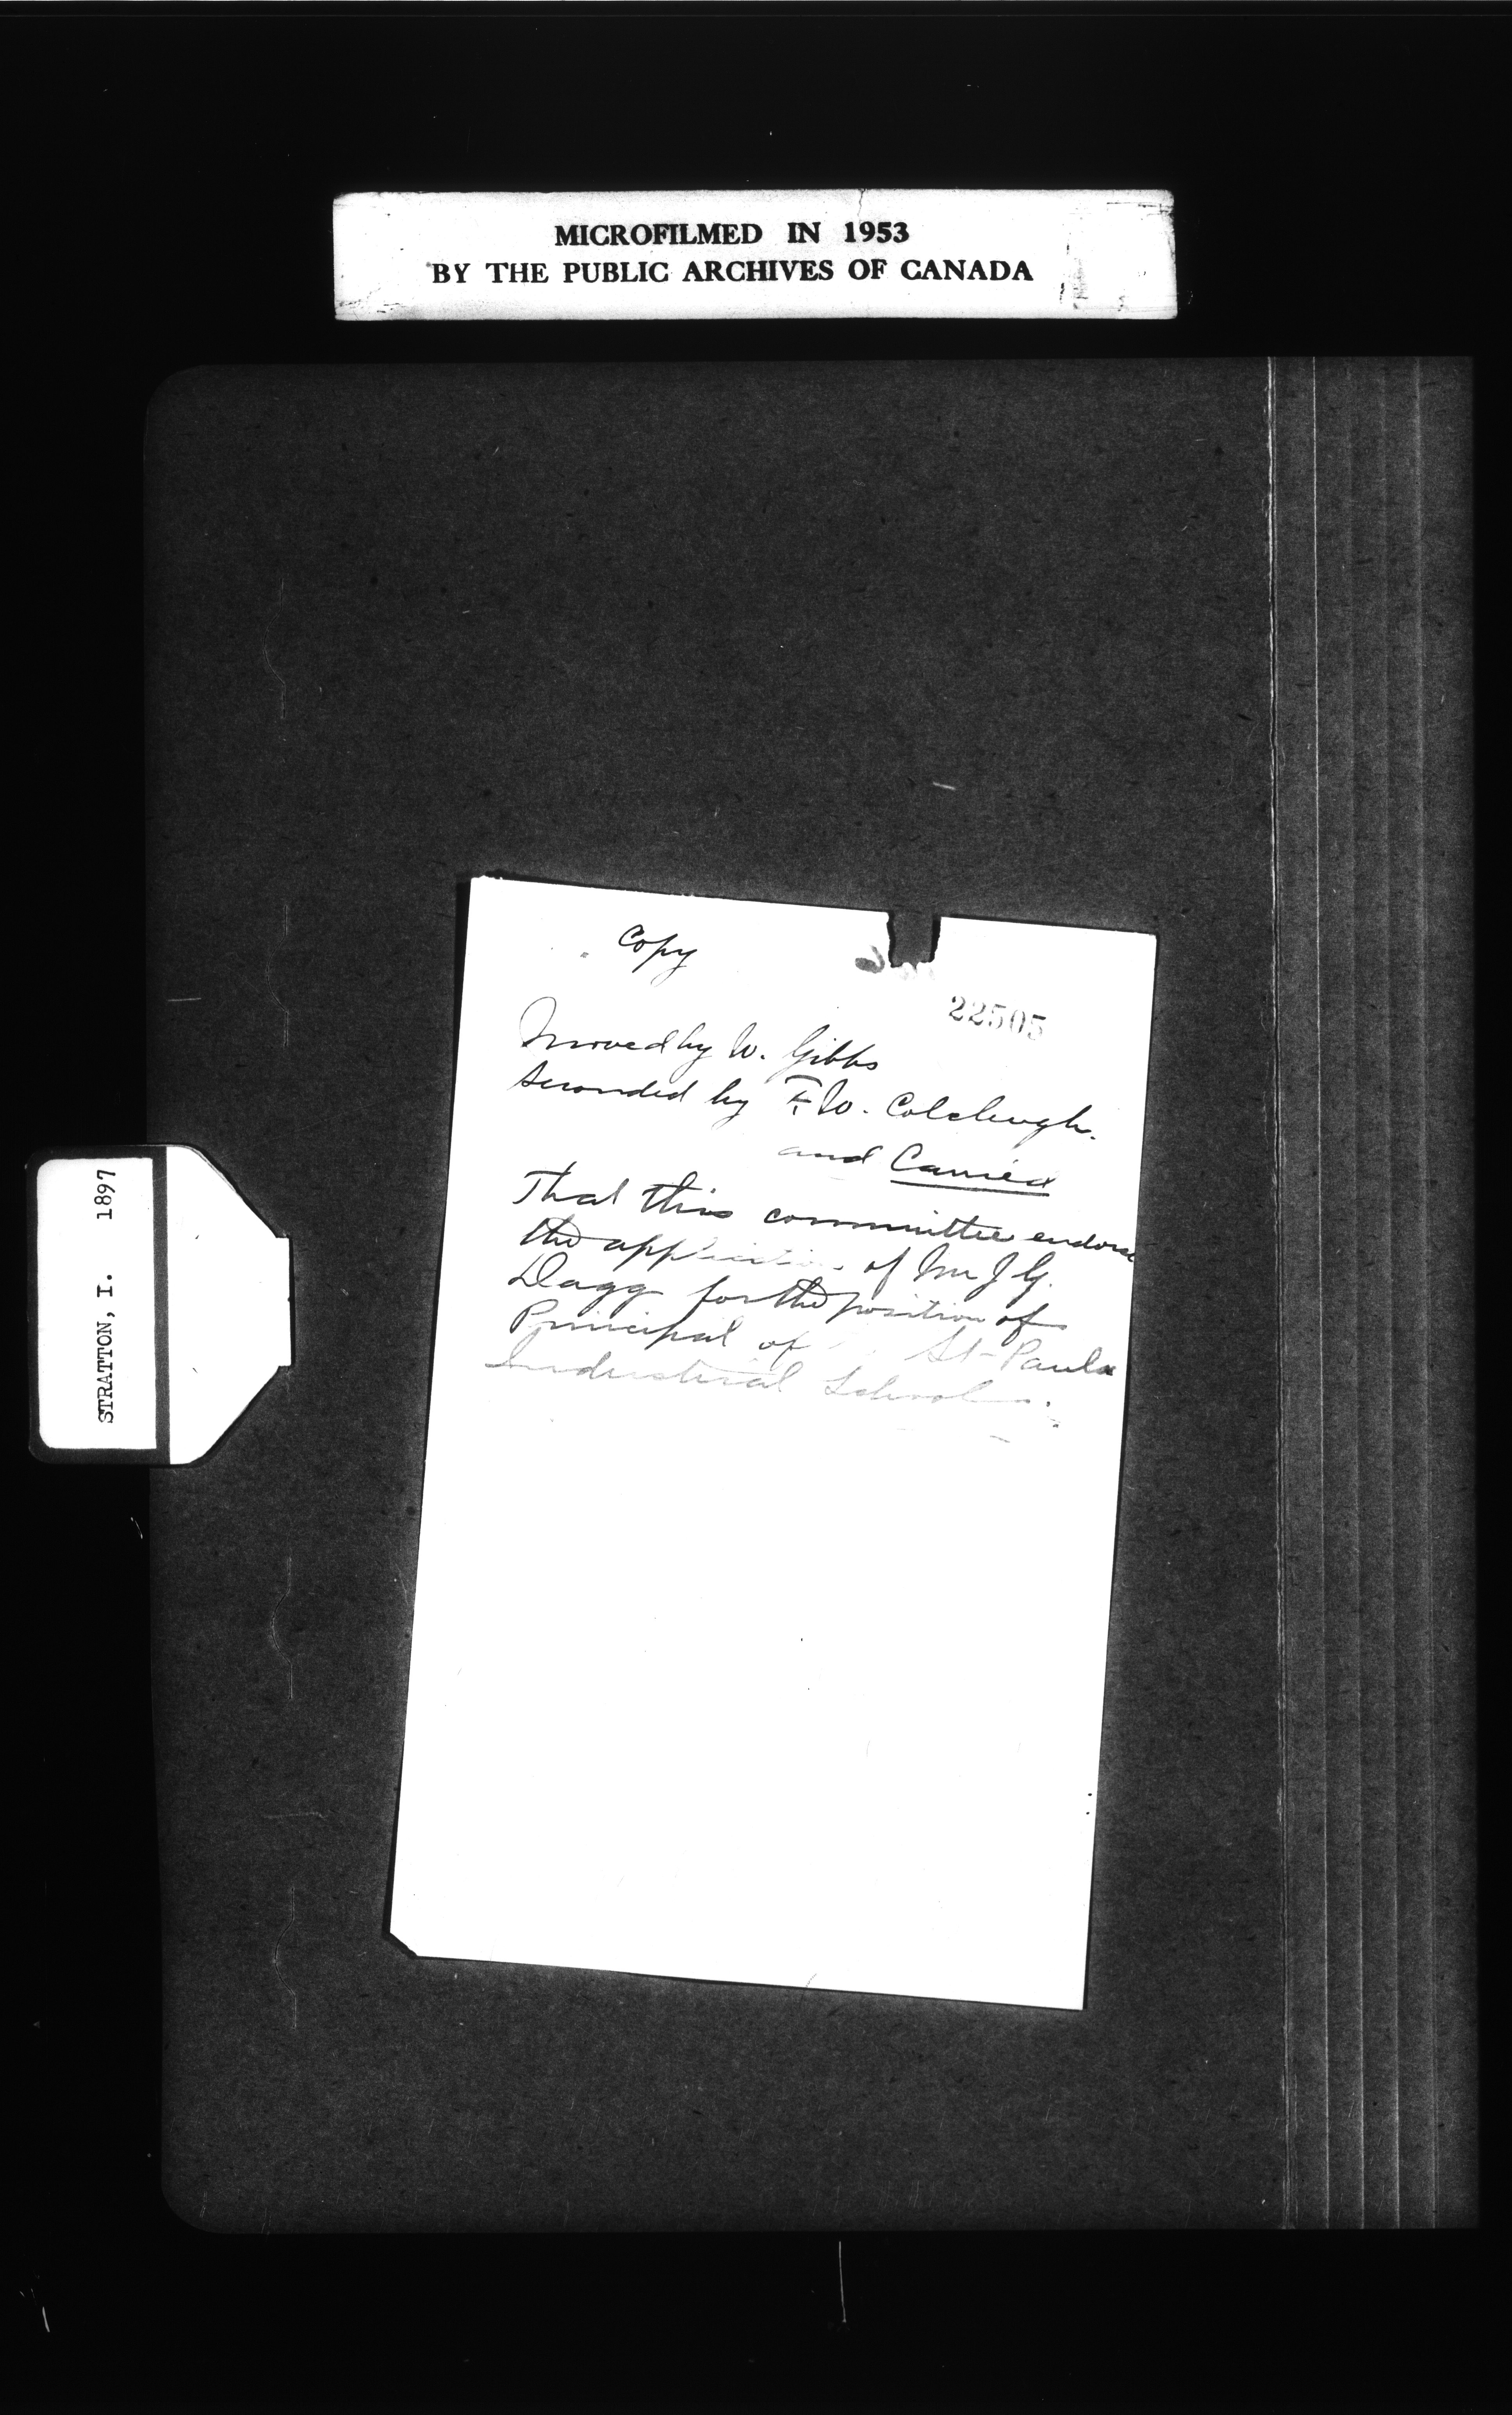 MICROFILMED IN 1953
BY THE PUBLIC ARCHIVES OF CANADA
STRATTON, I. 1897
Copy
22505
Moved by W. Gibbs
Seconded by F. W. Colcleugh.
and Carried
That this committee endorse
the application of Mr J. G.
Dagg for the position of
Principal of St Pauls
Industrial School.